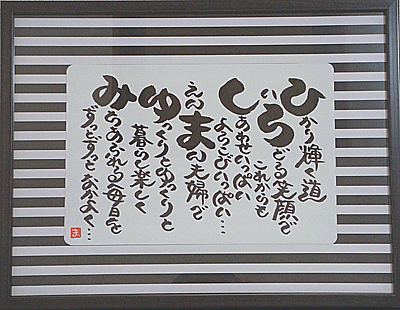 ひかり輝く道
いろどる笑顔で
これからも
しあわせいっぱい
よろこびいっぱい…
えんまん夫婦で
ゆっくりとゆっくりと
暮らし楽しく
みちあふれる毎日を
ずっとずっとなかよく…
ま